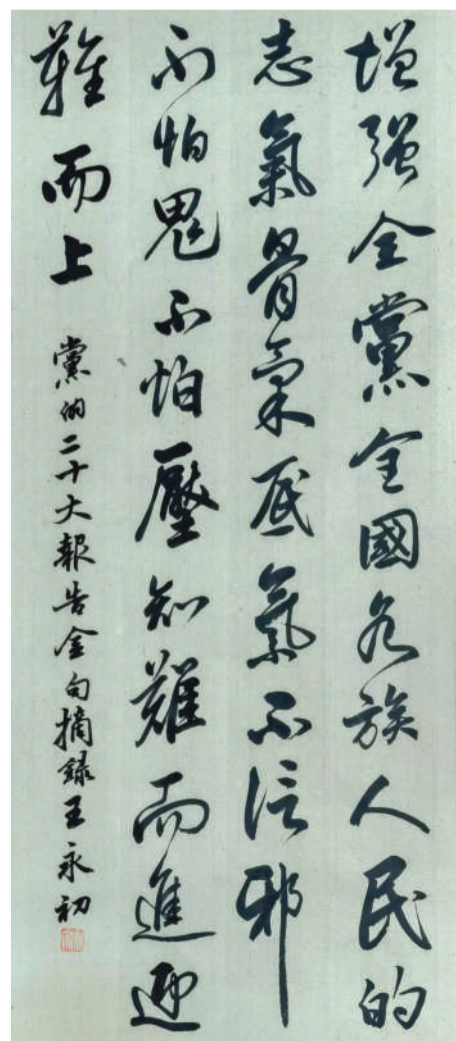 增强全黨全國各族人民的
志氣骨氣底氣不信邪
不怕鬼不怕壓知難而進迎
難而上
黨的二十大報告金句摘録王永初